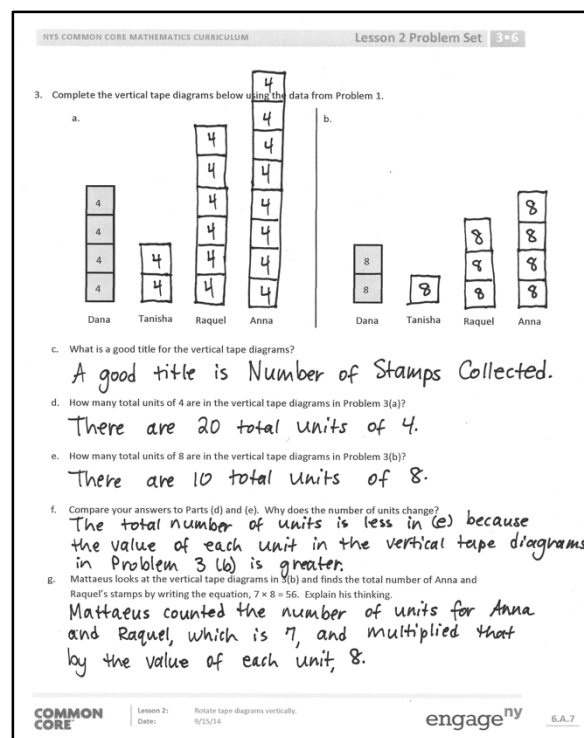 NYS COMMON CORE MATHEMATICS CURRICULUM
Lesson 2 Problem Set 3•6
3. Complete the vertical tape diagrams below using the data from Problem 1.
a.
4
4
4
4
Dana
4
4
Tanisha
4
4
4
4
4
4
Raquel
4
4
4
4
4
4
4
4
Anna
b.
8
8
Dana
8
Tanisha
8
8
8
Raquel
8
8
8
8
Anna
c. What is a good title for the vertical tape diagrams?
A good title is Number of Stamps Collected.
d. How many total units of 4 are in the vertical tape diagrams in Problem 3(a)?
There are 20 total units of 4.
e. How many total units of 8 are in the vertical tape diagrams in Problem 3(b)?
There are 10 total units of 8.
f. Compare your answers to Parts (d) and (e). Why does the number of units change?
The total number of units is less in (e) because
the value of each unit in the vertical tape diagrams
in Problem 3 (b) is greater.
g. Mattaeus looks at the vertical tape diagrams in 3(b) and finds the total number of Anna and
Raquel's stamps by writing the equation, 7 × 8 = 56. Explain his thinking.
Mattaeus counted the number of units for Anna
and Raquel, which is 7, and multiplied that
by the value of each unit, 8.
COMMON
CORE™
Lesson 2: Rotate tape diagrams vertically.
Date: 9/15/14
engage ny
6.A.7